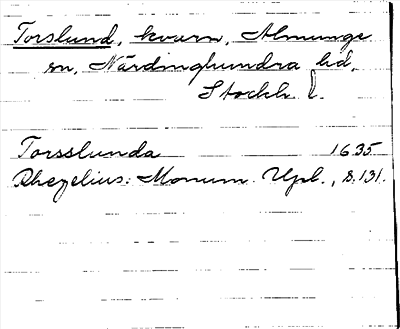 Torslund, kvarn, Almunge
sn, Närdinghundra hd,
Stockh. l.
Torsslunda 1635
Rhezelius: Monum. Upl., s. 131.